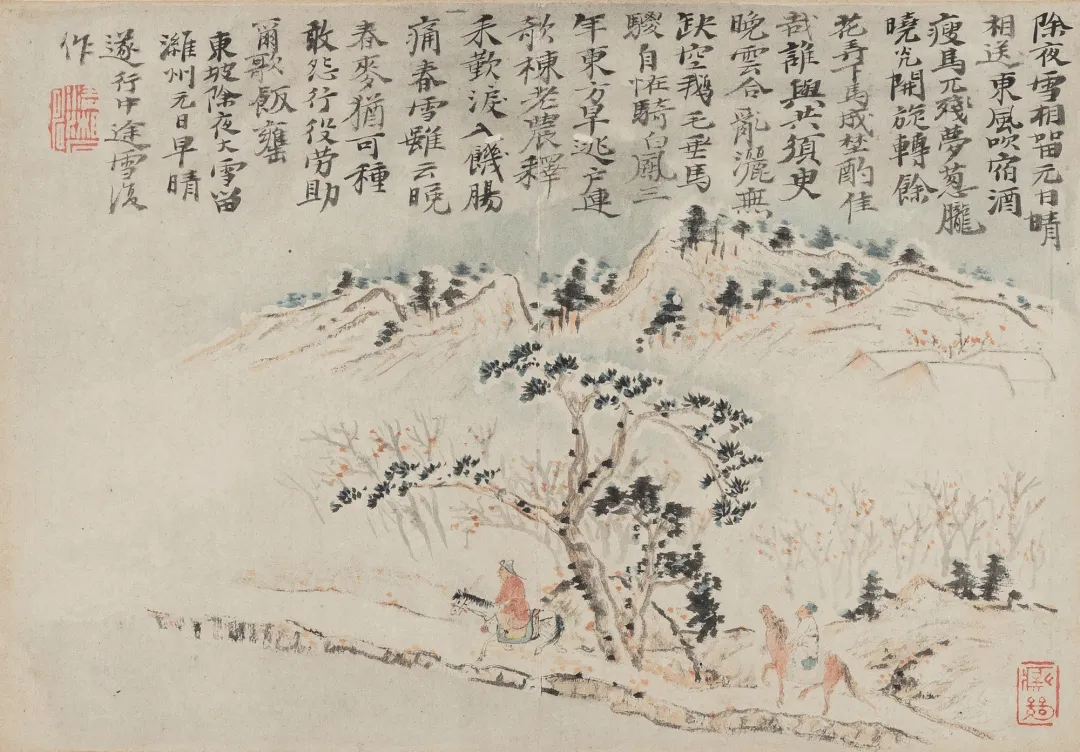 除夜雪相留元日晴
相送東風吹宿酒
瘦馬兀殘夢葱朧
曉光開旋轉餘
花弄下馬成埜酌佳
哉誰與共須臾
晚雲合亂灑無
缺空鵝毛垂馬
騣自怪騎白鳳三
年東方旱逃户連
欹棟老農釋耒
耒歎淚入饑腸
痛春雪雖云晚
春麥猶可種
敢怨行役勞助
爾歌飯甕
東坡除夜大雪留
濰州元日早晴
遂行中途雪復
作